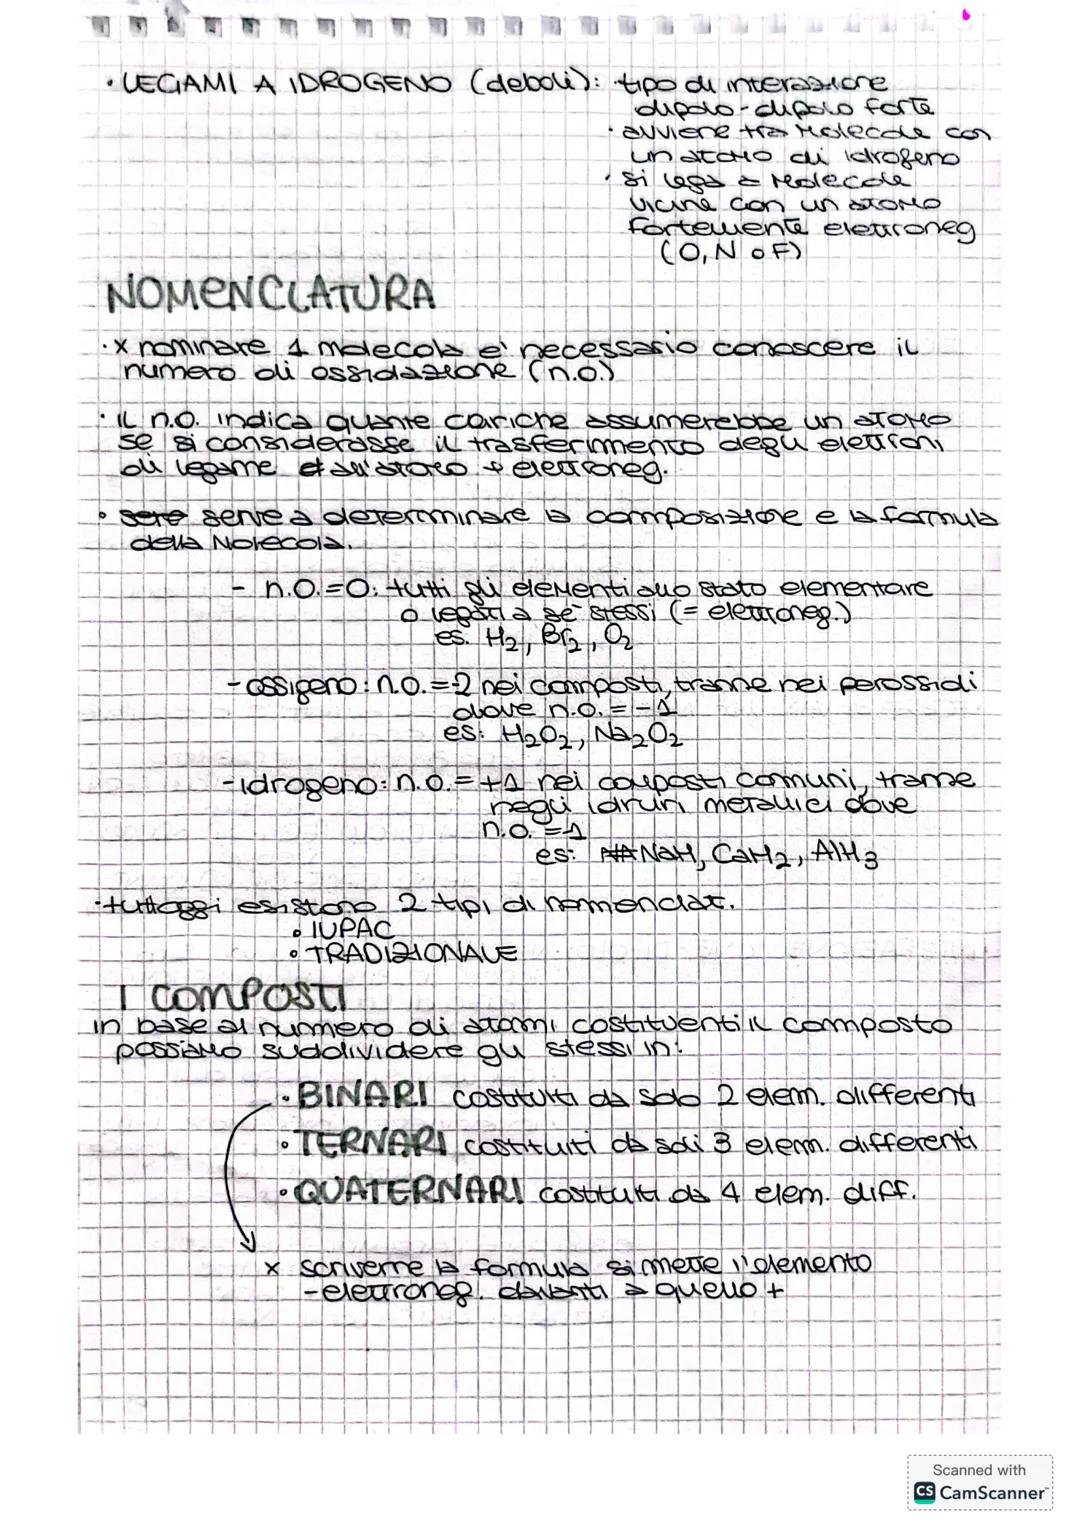 · LEGAMI A IDROGENO (deboli): tipo di interazione
dipolo-dipolo forte
· avviene tra molecole con
un atomo di idrogeno
· si lega a molecole
vicine con un atomo
fortemente elettroneg
(O, N o F)
NOMENCLATURA
· x nominare 1 molecola e' necessario conoscere il
numero di ossidazione (n.o.)
· il n.o. indica quante cariche assumerebbe un atomo
se si considerasse il trasferimento degli elettroni
di legame all'atomo + elettroneg.
• sere serve a determinare la composizione e la formula
della molecola.
- n.o.=0: tutti gli elementi allo stato elementare
o legati a se stessi (= elettroneg.)
es. H2, Br2, O2
- ossigeno: n.o.=-2 nei composti, tranne nei perossidi
dove n.o. = -1
es: H2O2, Na2O2
- idrogeno: n.o.= +1 nei composti comuni, tranne
negli idruri metallici dove
n.o. =-1
es: NaH, CaH2, AlH3
· tuttoggi esistono 2 tipi di nomenclat.
• IUPAC
• TRADIZIONALE
I COMPOSTI
in base al numero di atomi costituenti il composto
possiamo suddividere gli stessi in:
· BINARI costituiti da solo 2 elem. differenti
· TERNARI costituiti da soli 3 elem. differenti
· QUATERNARI costituiti da 4 elem. diff.
x scriverne la formula si mette l'elemento
-elettroneg. davanti a quello +
Scanned with
CS CamScanner